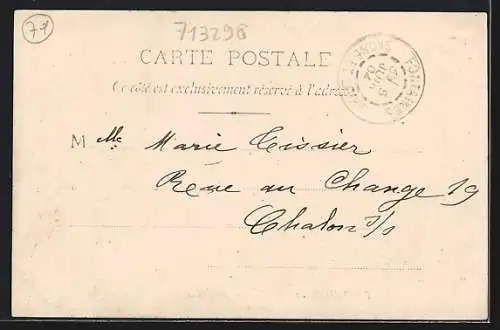 77
713296
CARTE POSTALE
Ce côté est exclusivement réservé à l'adresse
FONTAINES
SAÔNE-ET-LOIRE
M lle Marie Tissier
Rue au Change 19
Chalon s/s